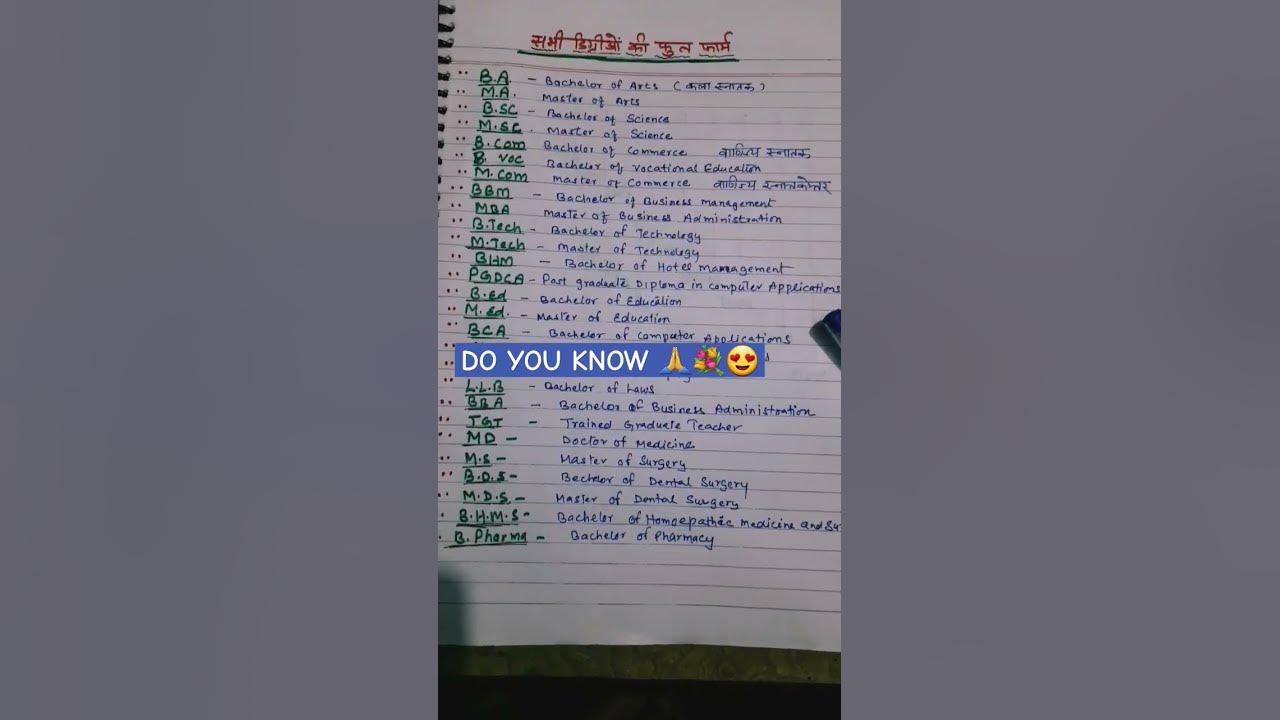 सभी डिग्रीओं की फुल फार्म
B.A. - Bachelor of Arts ( कला स्नातक )
M.A. Master of Arts
B.SC - Bachelor of Science
M.SC. Master of Science
B.Com Bachelor of Commerce वाणिज्य स्नातक
B. Voc Bachelor of Vocational Education
M.Com Master of Commerce वाणिज्य स्नातकोत्तर
BBM - Bachelor of Business Management
MBA Master of Business Administration
B.Tech - Bachelor of Technology
M.Tech - Master of Technology
BHM - Bachelor of Hotel Management
PGDCA - Post graduate Diploma in Computer Applications
B.Ed - Bachelor of Education
M.Ed. - Master of Education
BCA - Bachelor of Computer Applications
DO YOU KNOW 🙏💐😍
L.L.B - Bachelor of Laws
BBA - Bachelor of Business Administration
TGT - Trained Graduate Teacher
MD - Doctor of Medicine
M.S - Master of Surgery
B.D.S - Bechelor of Dental Surgery
M.D.S - Master of Dental Surgery
B.H.M.S - Bachelor of Homoepathic Medicine and Su
B. Pharma - Bachelor of Pharmacy